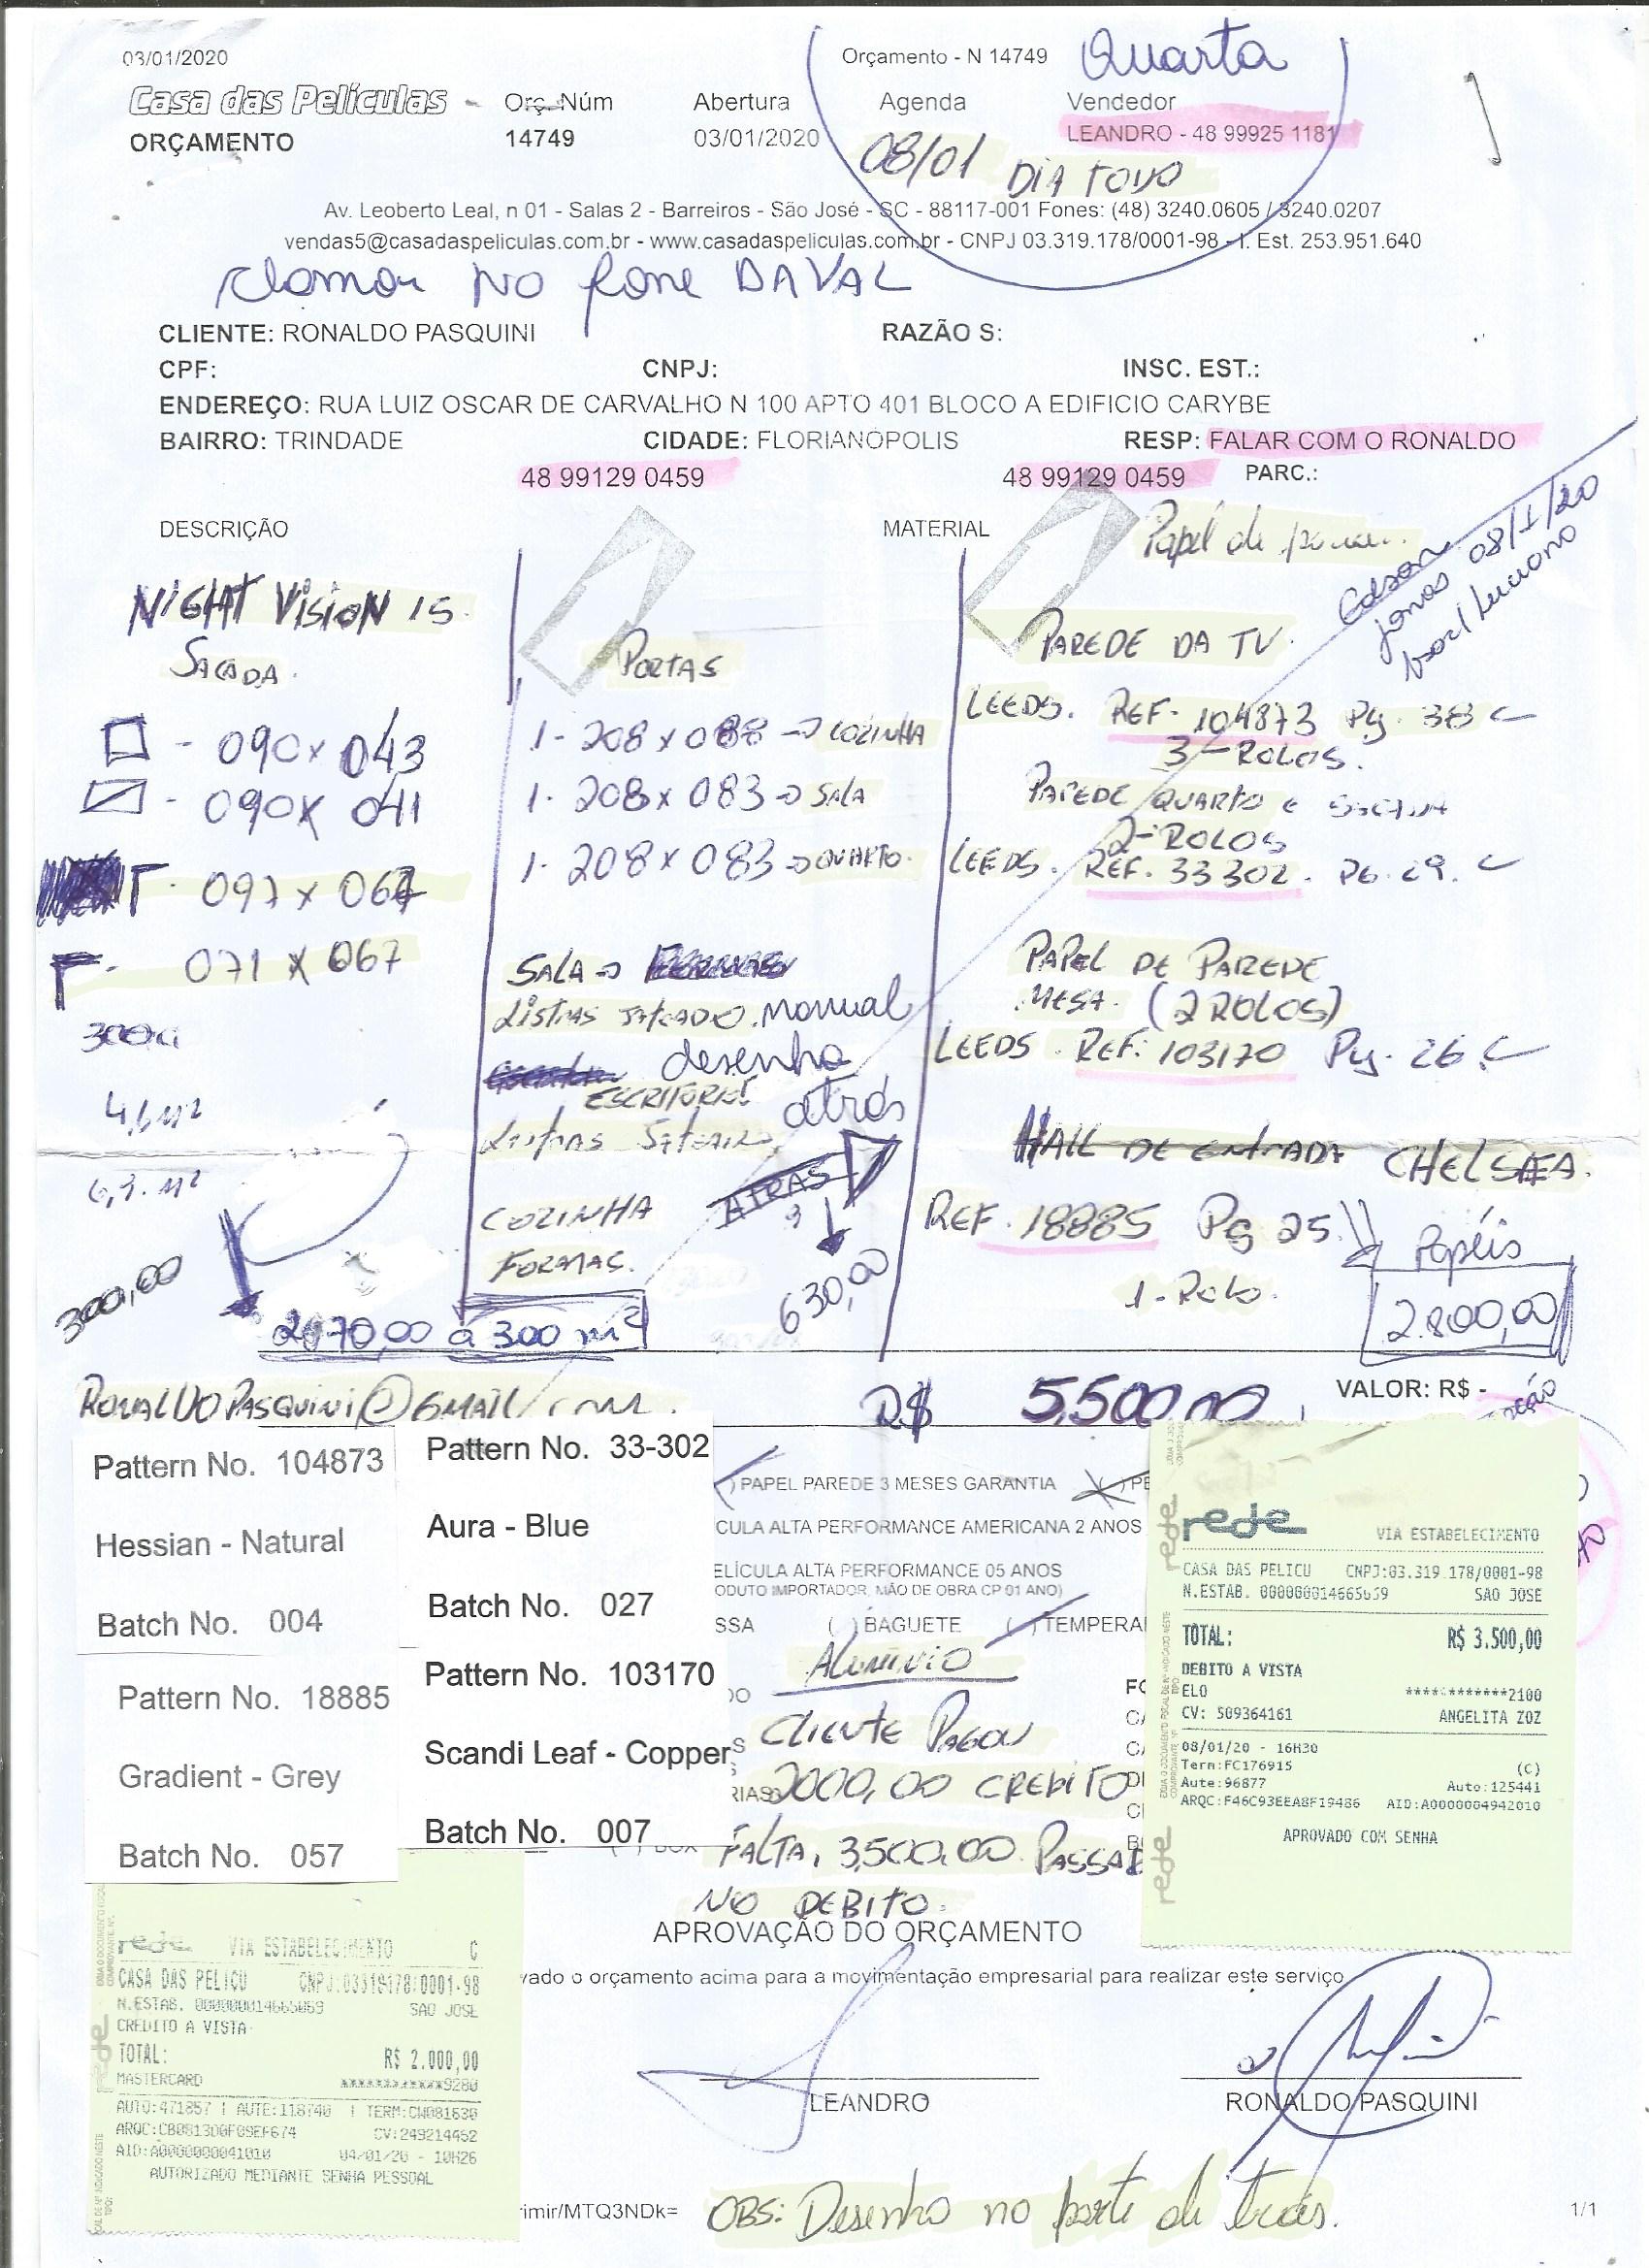 03/01/2020
Orçamento - N 14749
Quarta
Casa das Películas
Orç. Núm
Abertura
Agenda
Vendedor
ORÇAMENTO
14749
03/01/2020
08/01 DIA TODO
LEANDRO - 48 99925 1181
Av. Leoberto Leal, n 01 - Salas 2 - Barreiros - São José - SC - 88117-001 Fones: (48) 3240.0605 / 3240.0207
vendas5@casadaspeliculas.com.br - www.casadaspeliculas.com.br - CNPJ 03.319.178/0001-98 - I. Est. 253.951.640
NO fone DAVAL
CLIENTE: RONALDO PASQUINI
RAZÃO S:
CPF:
CNPJ:
INSC. EST.:
ENDEREÇO: RUA LUIZ OSCAR DE CARVALHO N 100 APTO 401 BLOCO A EDIFICIO CARYBE
BAIRRO: TRINDADE
CIDADE: FLORIANÓPOLIS
RESP: FALAR COM O RONALDO
48 99129 0459
48 99129 0459
PARC.:
DESCRIÇÃO
MATERIAL
Papel de
08/1/20
NIGHT VISION 15
SACADA.
- 090 x 043
- 090 x 041
071 x 067
4,6 m²
300,00
2970,00 a 300 m²
PORTAS
1 - 208 x 088 -> COZINHA
1 - 208 x 083 -> SALA
1 - 208 x 083 -> QUARTO.
SALA ->
LISTRAS JATEADO. manual
desenho
ESCRITORIO
atrás
LISTRAS
ATRAS
COZINHA
FORMAS.
630,00
PAREDE DA TV.
LEEDS. REF- 104873 Pg. 38
3 - ROLOS.
PAREDE QUARTO E
2 - ROLOS
LEEDS. REF. 33302. PG. 29.
PAPEL DE PAREDE
MESA. (2 ROLOS)
LEEDS. REF: 103170 Pg. 26
HALL DE ENTRADA CHELSEA.
REF. 18885 Pg 25.
1 - ROLO.
Papéis
2.800,00
RONALDOPASQUINI@GMAIL.COM.
R$ 5.500,00
VALOR: R$ -
Pattern No. 104873
Hessian - Natural
Batch No. 004
Pattern No. 33-302
Aura - Blue
Batch No. 027
Pattern No. 18885
Gradient - Grey
Batch No. 057
Pattern No. 103170
Scandi Leaf - Copper
Batch No. 007
) PAPEL PAREDE 3 MESES GARANTIA ( ) PE
CULA ALTA PERFORMANCE AMERICANA 2 ANOS
ELÍCULA ALTA PERFORMANCE 05 ANOS
ODUTO IMPORTADOR, MÃO DE OBRA CP 01 ANO)
SSA ( ) BAGUETE ( ) TEMPERA
ALUMINIO
CLIENTE PAGOU
2000,00 CREDITO
FALTA, 3.500,00. PASSAR
NO DEBITO.
rede
VIA ESTABELECIMENTO
CASA DAS PELICU CNPJ:03.319.178/0001-98
N.ESTAB. 000000014665659 SAO JOSE
TOTAL: R$ 3.500,00
DEBITO A VISTA
ELO ************2100
CV: 509364161 ANGELITA ZOZ
08/01/20 - 16H30
Term:FC176915 (C)
Aute:96877 Auto:125441
ARQC:F46C93EEA8F19486 AID:A0000004942010
APROVADO COM SENHA
APROVAÇÃO DO ORÇAMENTO
vado o orçamento acima para a movimentação empresarial para realizar este serviço
LEANDRO
RONALDO PASQUINI
rede VIA ESTABELECIMENTO C
CASA DAS PELICU CNPJ:03319178/0001-98
SAO JOSE
CREDITO A VISTA
TOTAL: R$ 2.000,00
MASTERCARD ************9280
AUTO:471857 | AUTE:118740 | TERM:CW081630
CV:249214452
AID:A0000000041010 04/01/20 - 10H26
AUTORIZADO MEDIANTE SENHA PESSOAL
imir/MTQ3NDk=
OBS: Desenho no parte de trás.
1/1